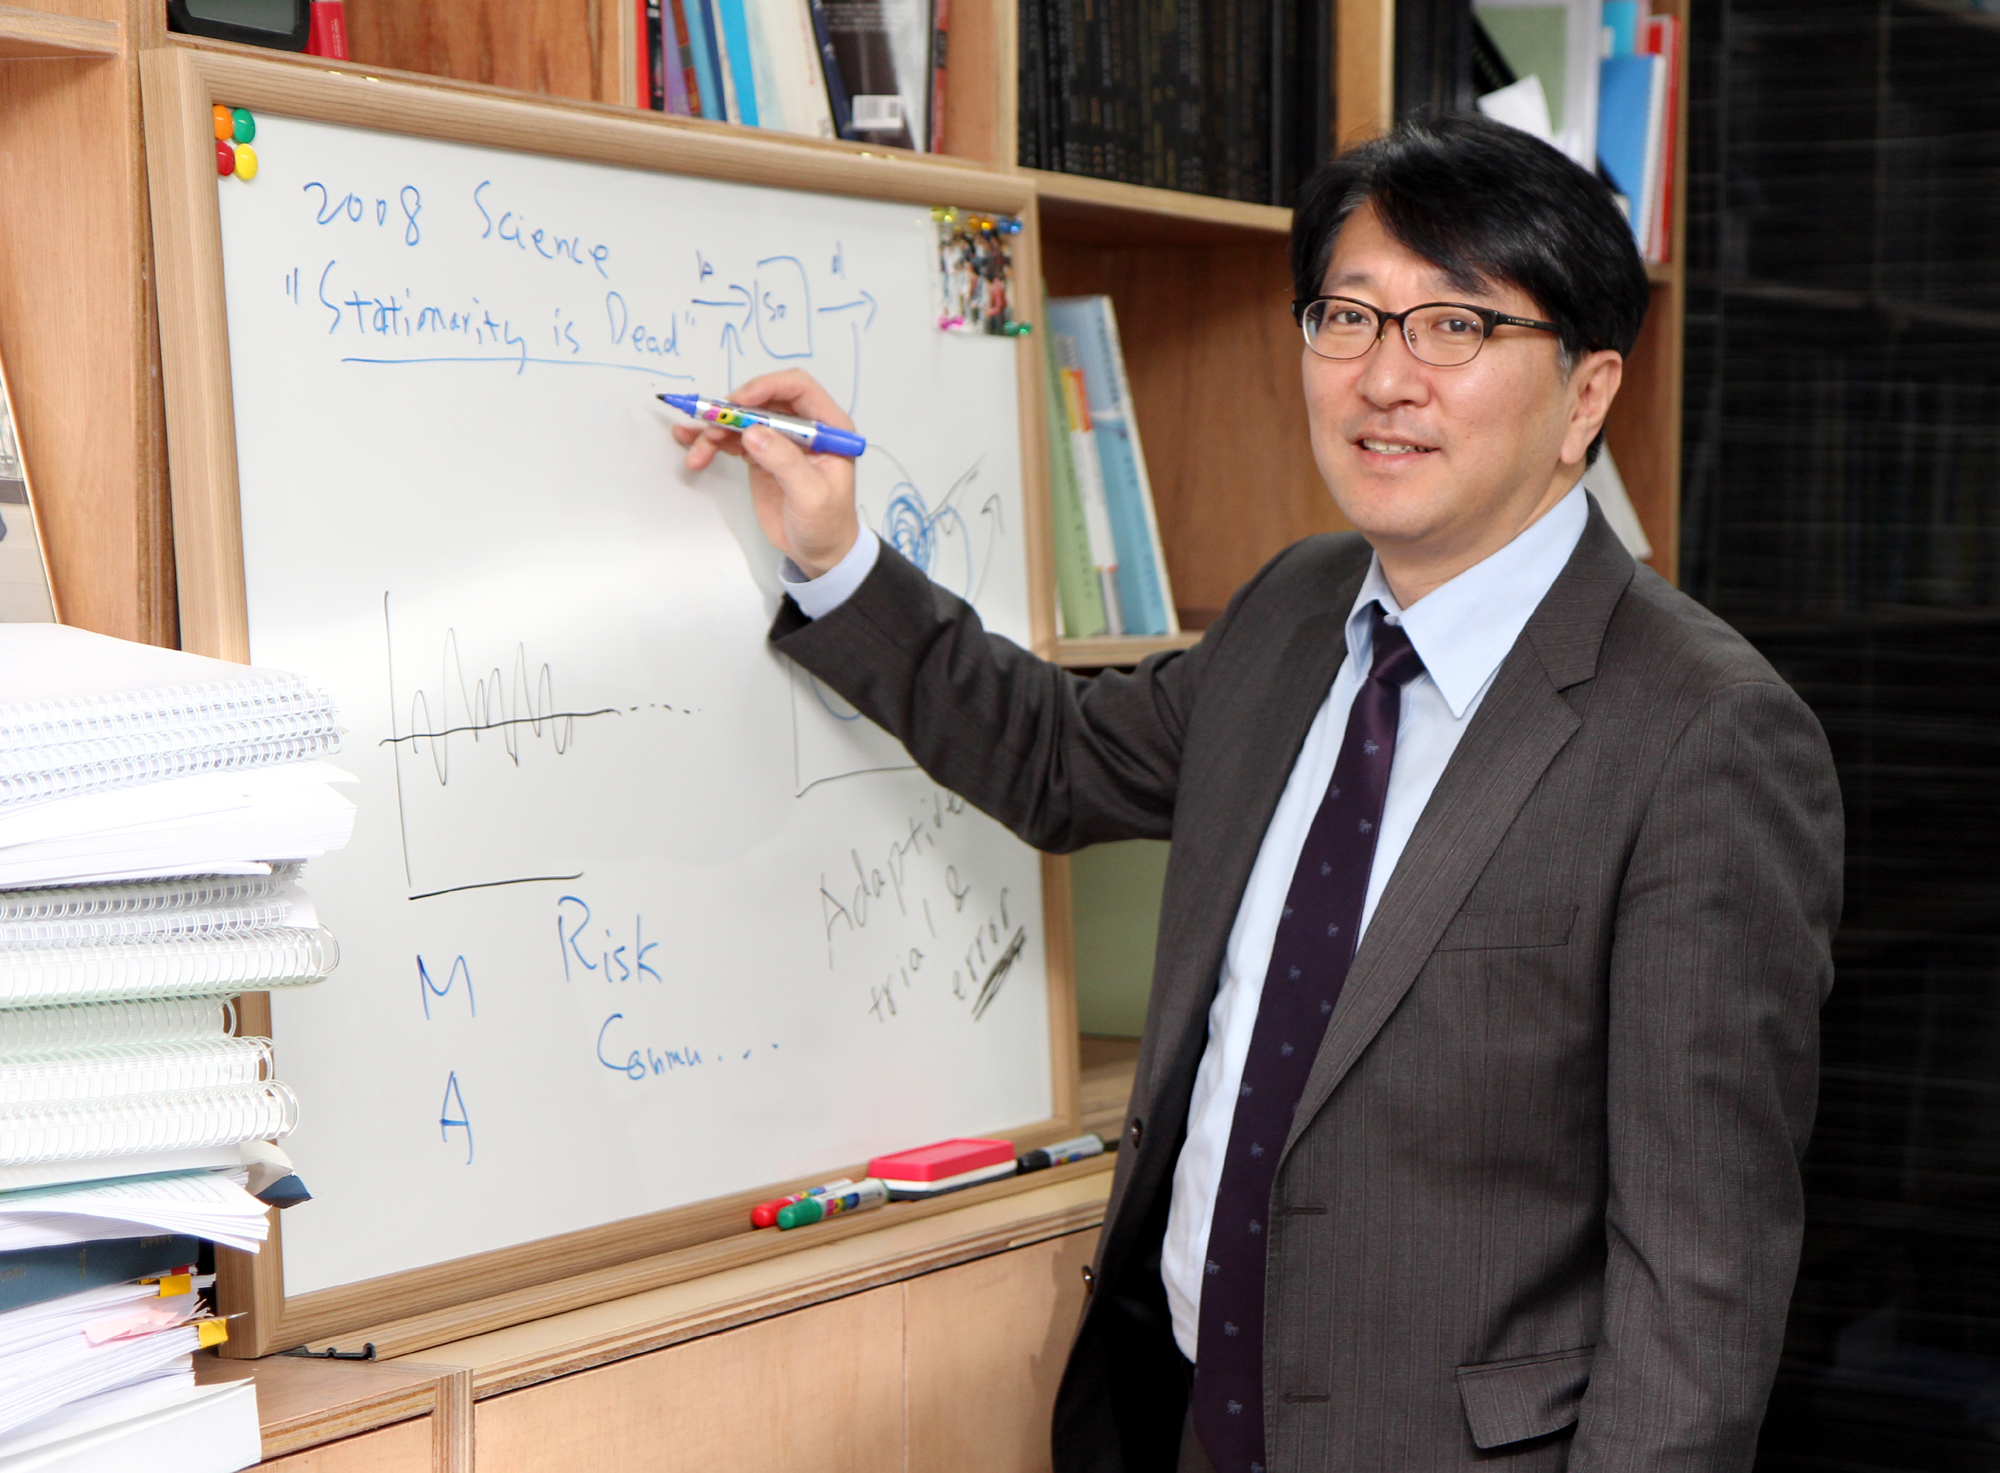 2008 Science
"Stationarity is Dead"
d
M
A
Risk
Commu...
Adaptive
trial &
error